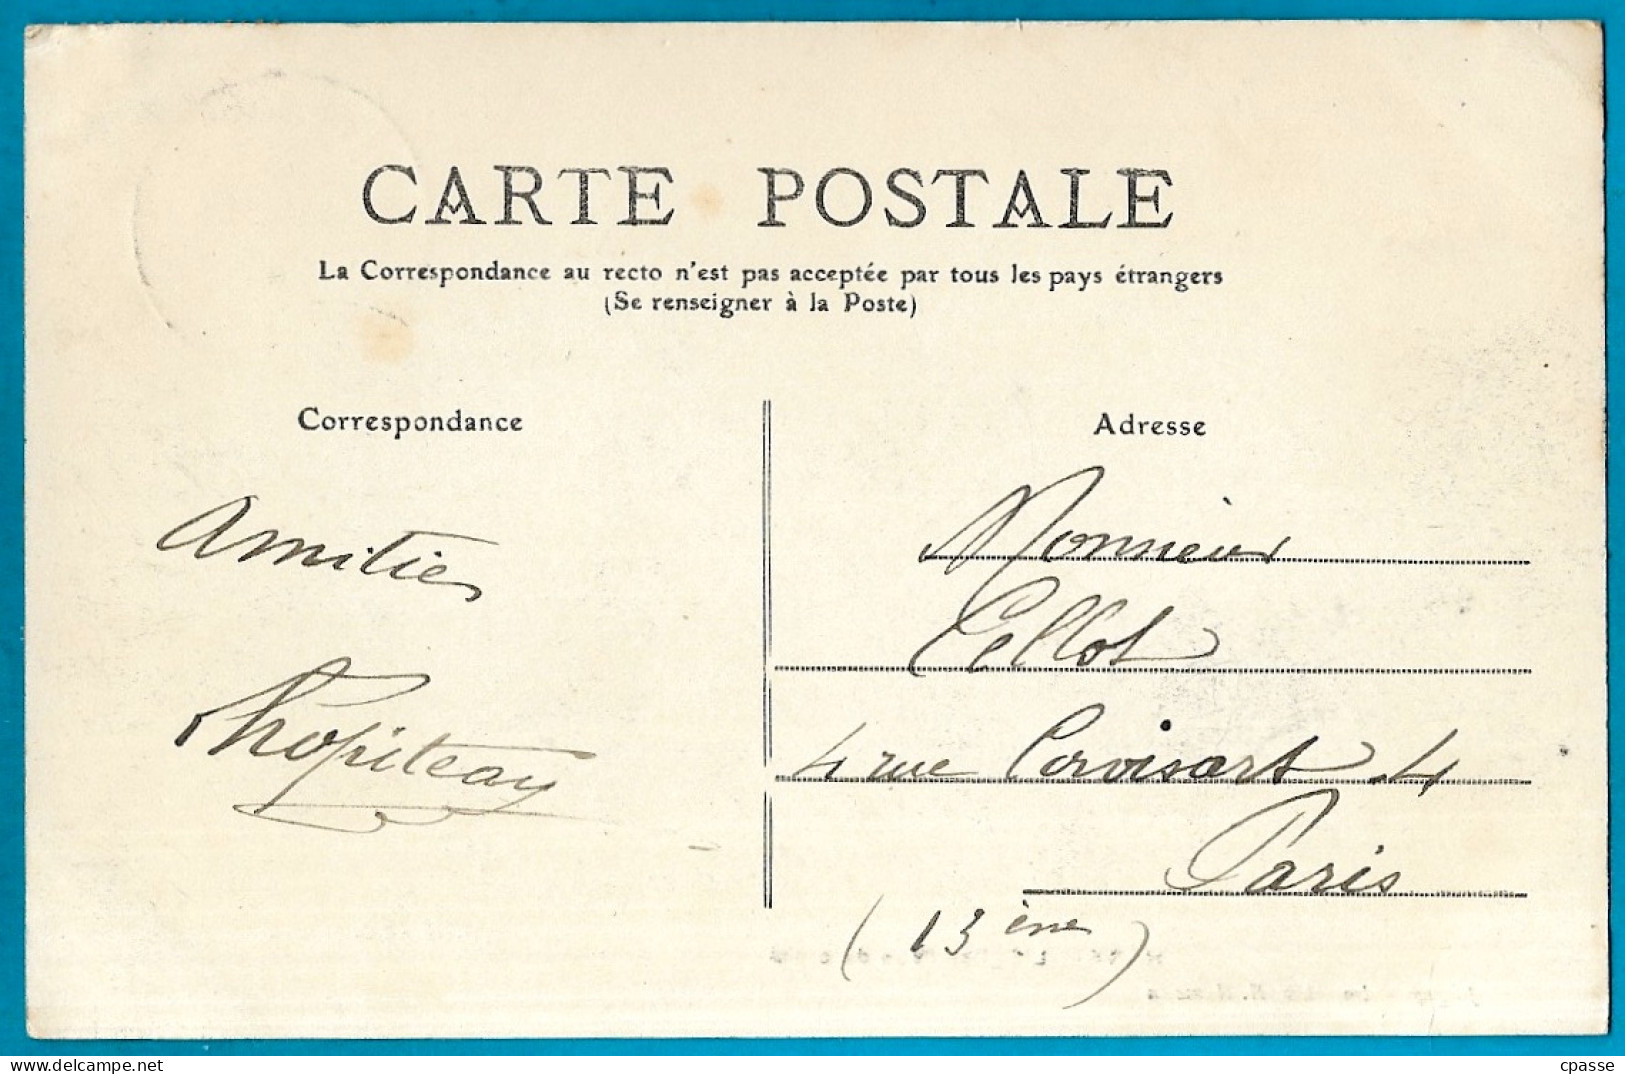 CARTE POSTALE
La Correspondance au recto n'est pas acceptée par tous les pays étrangers
(Se renseigner à la Poste)
Correspondance
Amitiés
Lhopiteau
Adresse
Monsieur
Cellot
4 rue Corvisart 4
Paris
(13 ème)
cpasse